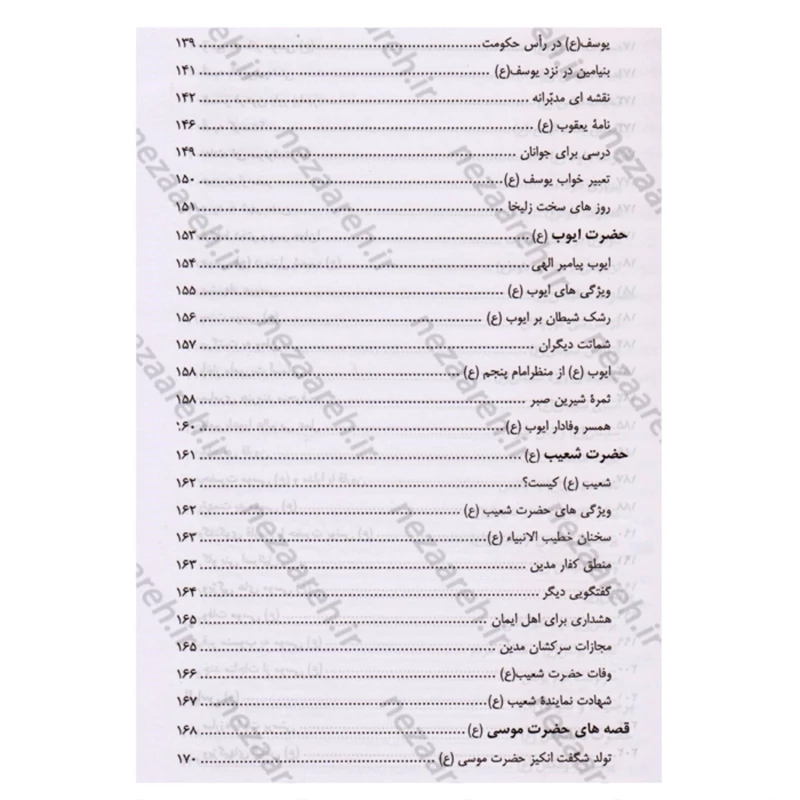 یوسف(ع) در رأس حکومت ........ ۱۳۹
بنیامین در نزد یوسف(ع) ........ ۱۴۱
نقشه ای مدبّرانه ........ ۱۴۲
نامهٔ یعقوب (ع) ........ ۱۴۶
درسی برای جوانان ........ ۱۴۹
تعبیر خواب یوسف (ع) ........ ۱۵۰
روز های سخت زلیخا ........ ۱۵۱
حضرت ایوب (ع) ........ ۱۵۳
ایوب پیامبر الهی ........ ۱۵۴
ویژگی های ایوب (ع) ........ ۱۵۵
رشک شیطان بر ایوب (ع) ........ ۱۵۶
شماتت دیگران ........ ۱۵۷
ایوب (ع) از منظرامام پنجم (ع) ........ ۱۵۸
ثمرهٔ شیرین صبر ........ ۱۵۸
همسر وفادار ایوب (ع) ........ ۱۶۰
حضرت شعیب (ع) ........ ۱۶۱
شعیب (ع) کیست؟ ........ ۱۶۲
ویژگی های حضرت شعیب (ع) ........ ۱۶۲
سخنان خطیب الانبیاء (ع) ........ ۱۶۳
منطق کفار مدین ........ ۱۶۳
گفتگویی دیگر ........ ۱۶۴
هشداری برای اهل ایمان ........ ۱۶۵
مجازات سرکشان مدین ........ ۱۶۵
وفات حضرت شعیب(ع) ........ ۱۶۶
شهادت نمایندهٔ شعیب (ع) ........ ۱۶۷
قصه های حضرت موسی (ع) ........ ۱۶۸
تولد شگفت انکیز حضرت موسی (ع) ........ ۱۷۰
nezaareh.ir